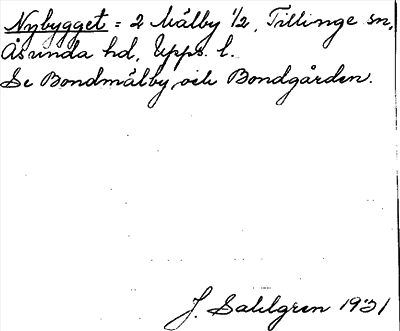 Nybygget = 2 Målby 1/2, Tillinge sn,
Åsunda hd, Upps. l.
Se Bondmålby och Bondgården.
J. Sahlgren 1931